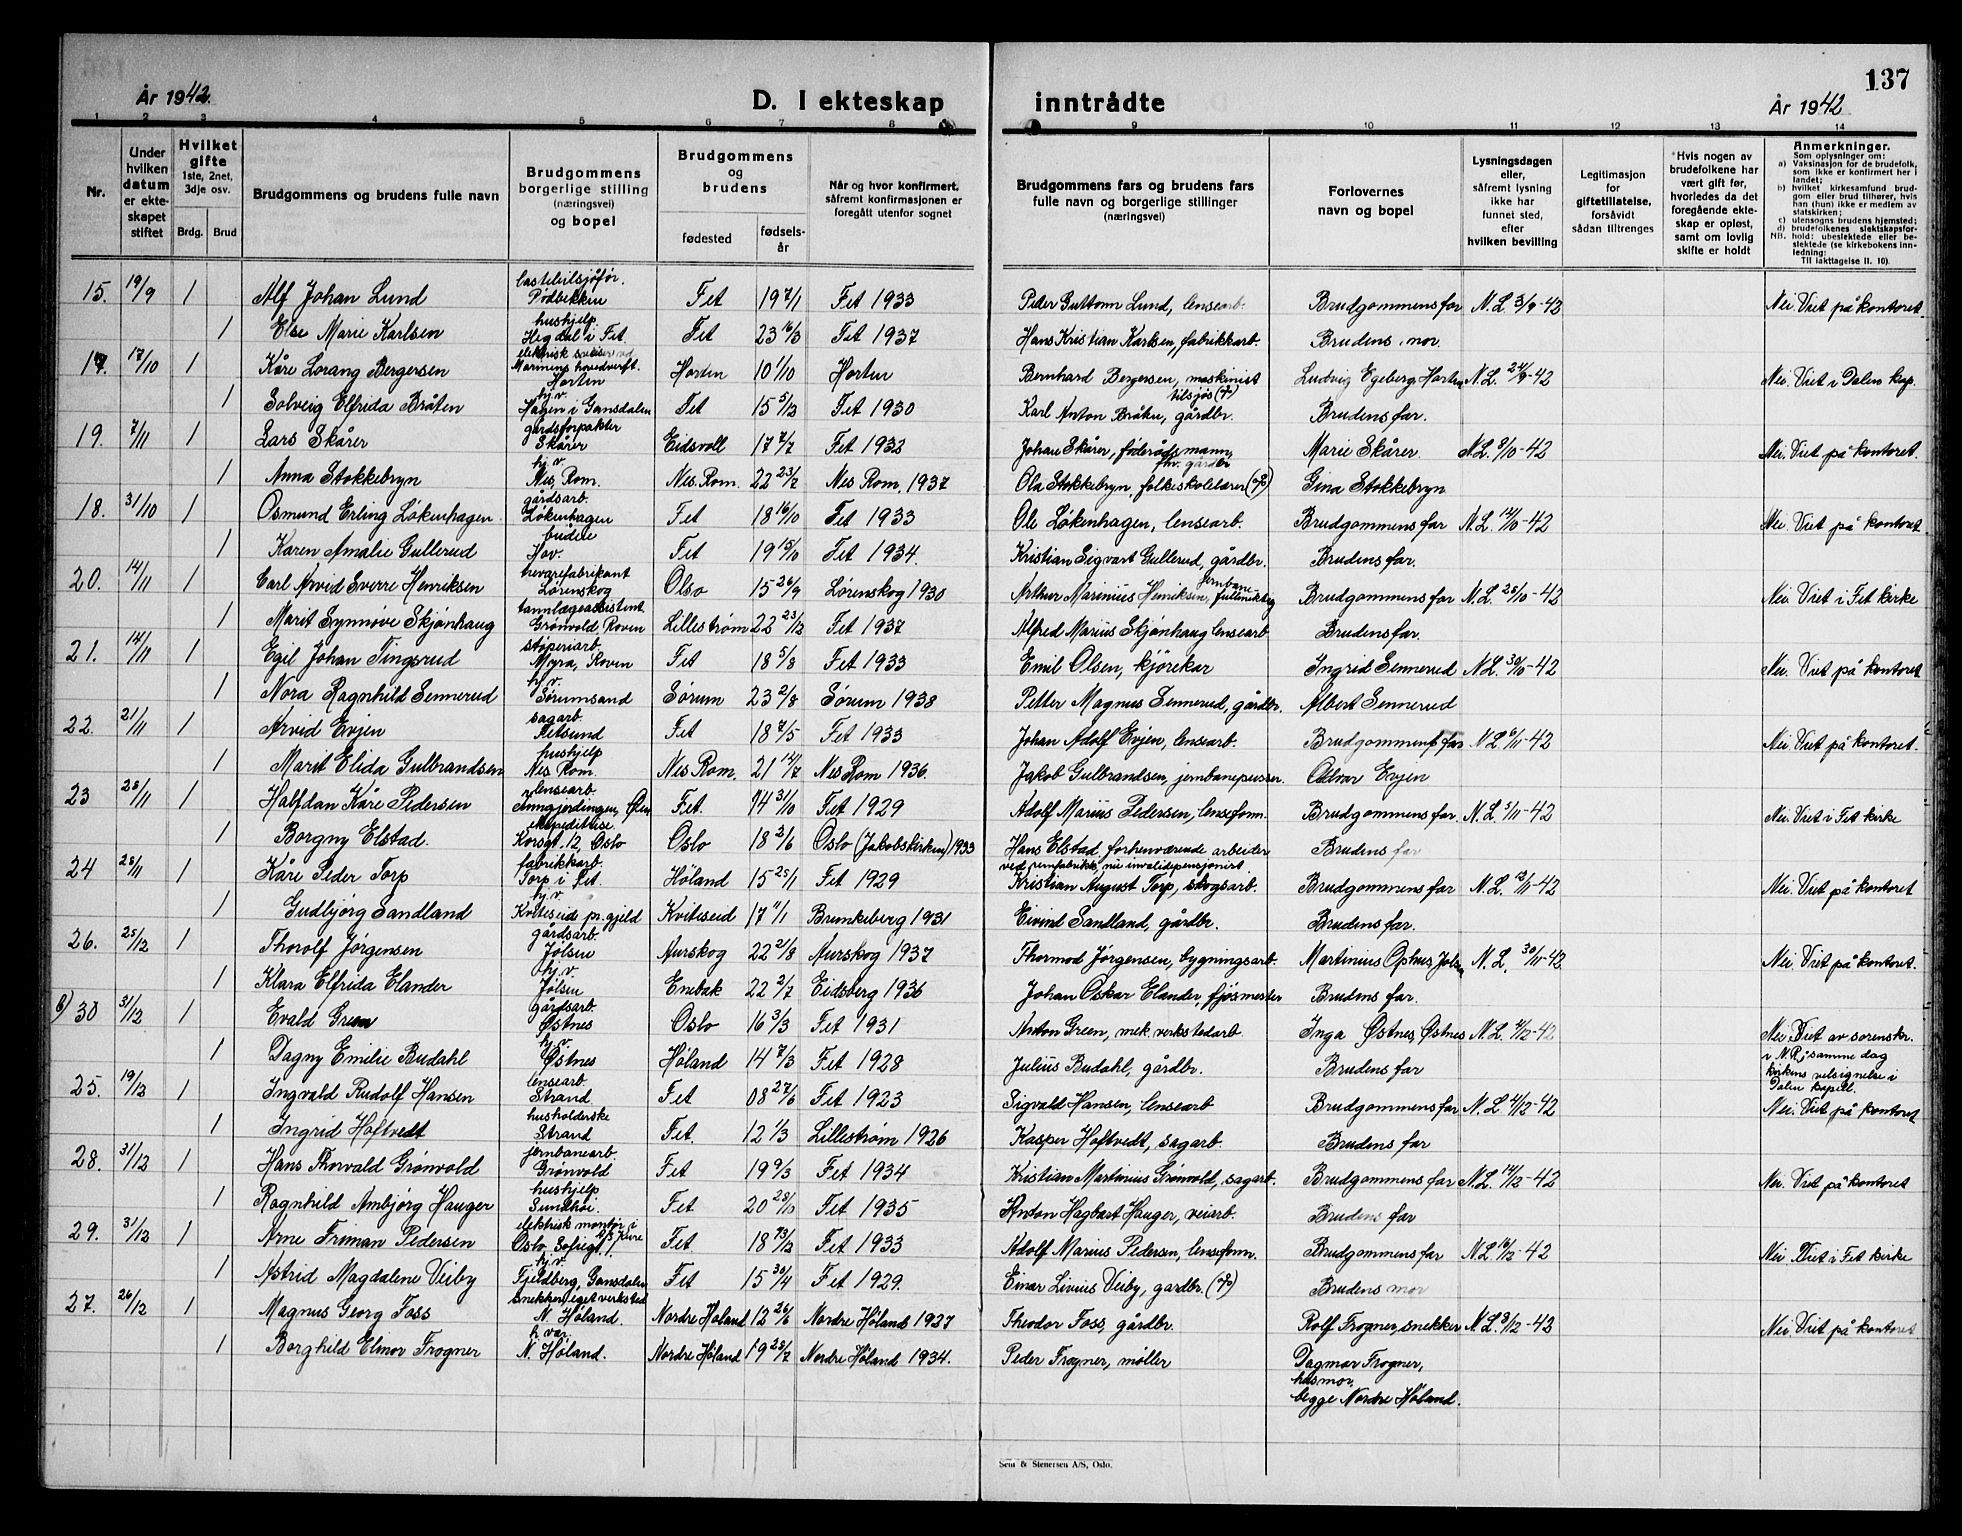 137
År 1942.
D. I ekteskap
inntrådte
År 1942
1 2 3 4 5 6 7 8 9 10 11 12 13 14
Nr.
Under hvilken datum er ekteskapet stiftet
Hvilket gifte 1ste, 2net, 3dje osv.
Brdg. Brud
Brudgommens og brudens fulle navn
Brudgommens borgerlige stilling (næringsvei) og bopel
Brudgommens og brudens
fødested
fødselsår
Når og hvor konfirmert, såfremt konfirmasjonen er foregått utenfor sognet
Brudgommens fars og brudens fars fulle navn og borgerlige stillinger (næringsvei)
Forlovernes navn og bopel
Lysningsdagen eller, såfremt lysning ikke har funnet sted, efter hvilken bevilling
Legitimasjon for giftetillatelse, forsåvidt sådan tiltrenges
*Hvis nogen av brudefolkene har vært gift før, hvorledes da det foregående ekteskap er opløst, samt om lovlig skifte er holdt
Anmerkninger.
Som oplysninger om:
a) Vaksinasjon for de brudefolk, som ikke er konfirmert her i landet;
b) hvilket kirkesamfund brudgom eller brud tilhører, hvis han (hun) ikke er medlem av statskirken;
c) utensogns brudens hjemsted;
d) brudefolkenes slektskapsforhold: ubeslektede eller beslektede (se kirkebokens innledning:
NB. Til iakttagelse II. 10).
15. 19/9 1 Alf Johan Lund lastebilsjåfør. Rødbekken Fet 19 7/1 Fet 1933 Peder Guttorm Lund, lensearb. Brudgommens far N.L. 3/9-42 Nei. Viet på kontoret.
1 Else Marie Karlsen hushjelp Hegdal i Fet. Fet 23 16/3 Fet 1937 Hans Kristian Karlsen, fabrikkarb. Brudens mor.
17. 17/10 1 Kåre Lorang Bergersen elektrisk sveiser ved Marinens hovedverft. Horten Horten 10 1/10 Horten Bernhard Bergersen, maskinist tilsjøs (†) Ludvig Egeberg, Horten N.L. 24/9-42 Nei. Viet i Dalen kap.
1 Solveig Elfrida Bråten hj.v. Hagen i Gansdalen Fet 15 5/12 Fet 1930 Karl Anton Bråten, gårdbr. Brudens far.
19. 7/11 1 Lars Skårer gårdsforpakter Skårer Eidsvoll 17 7/7 Fet 1932 Johan Skårer, føderådsmann, fhv. gårdbr Marie Skårer N.L. 8/10-42 Nei. Viet på kontoret.
1 Anna Stokkebryn hj.v. Nes, Rom. Nes. Rom. 22 23/7 Nes Rom, 1937 Ola Stokkebryn, folkeskolelærer (†) Gina Stokkebryn
18. 31/10 1 Osmund Erling Løkenhagen gårdsarb. Løkenhagen Fet 18 16/10 Fet 1933 Ole Løkenhagen, lensearb. Brudgommens far N.L. 12/10-42 Nei. Viet på kontoret
1 Karen Amalie Gullerud budeie Hov. Fet 19 15/10 Fet 1934. Kristian Sigvart Gullerud, gårdbr. Brudens far.
20. 14/11 1 Carl Arvid Sverre Henriksen trevarefabrikant Lørenskog Oslo 15 26/9 Lørenskog 1930 Arthur Marinius Henriksen, jernbanefullmektig Brudgommens far N.L. 25/10-42 Nei. Viet i Fet kirke
1 Marit Synnøve Skjønhaug tannlægeassistent Grønvold, Roven Lillestrøm 22 23/12 Fet 1937 Alfred Marius Skjønhaug lensearb Brudens far.
21. 14/11 1 Egil Johan Tingsrud støperiarb. Myra, Roven Fet 18 5/8 Fet 1933 Emil Olsen, kjørekar Ingrid Sennerud N.L. 30/10-42 Nei. Viet på kontoret
1 Nora Ragnhild Sennerud hj.v. Sørumsand Sørum 23 2/8 Sørum 1938 Petter Magnus Sennerud, gårdbr. Albert Sennerud
22. 21/11 1 Arvid Evjen sagarb. Fetsund Fet 18 7/5 Fet 1933 Johan Adolf Evjen, lensearb. Brudgommens far N.L. 6/11-42 Nei. Viet på kontoret.
1 Marit Elida Gulbrandsen hushjelp Nes Rom. Nes Rom. 21 14/7 Nes Rom 1936. Jakob Gulbrandsen, jernbanepusser. Odvar Evjen
23 28/11 1 Halfdan Kåre Pedersen lensearb. Fet. 14 31/10 Fet 1929 Adolf Marius Pedersen, lenseform. Brudgommens far. N.L. 5/11-42 Nei. Viet i Fet kirke
1 Borgny Elstad. ekspeditrise. Korsgt. 12, Oslo Oslo 18 3/6 Oslo (Jakobskirken) 1933 Hans Elstad, forhenværende arbeider ved remfabrikk, nu invalidepensjonist Brudens far
24 28/11 1 Kåre Peder Torp fabrikkarb. Torp i Fet. Høland 15 25/1 Fet 1929 Kristian August Torp, skogsarb. Brudgommens far N.L. 13/11-42 Nei. Viet på kontoret
1 Gudbjørg Sandland hj.v. Kviteseid pr.gjeld Kviteseid 17 11/1 Brunkeberg 1931 Eivind Sandland, gårdbr. Brudens far.
26. 25/12 1 Thorolf Jørgensen gårdsarb. Jølsen Aurskog 22 2/8 Aurskog 1937 Thormod Jørgensen, bygningsarb. Martinius Ophus, Jølsen N.L. 30/11-42 Nei. Viet på kontoret.
1 Klara Elfrida Elander hj.v. Jølsen Enebak 22 2/7 Eidsberg 1936 Johan Oskar Elander, fjøsmester Brudens far.
b) 30 31/12 1 Evald Green gårdsarb. Østnes Oslo 16 3/3 Fet 1931 Anton Green, mek. verkstedarb. Inga Østnes, Østnes N.L. 4/12-42 Nei. Viet av sorenskr. i N.R. samme dag kirkens velsignelse i Dalen kapell.
1 Dagny Emilie Budahl hj.v. Østnes Høland 14 7/3 Fet 1928 Julius Budahl, gårdbr. Brudens far
25. 19/12 1 Ingvald Rudolf Hansen lensearb. Strand Fet 08 27/6 Fet 1923 Sigvald Hansen, lensearb Brudgommens far N.L. 4/12-42 Nei. Viet på kontoret
1 Ingrid Hoftvedt husholderske Strand Fet. 12 1/3 Lillestrøm 1926 Kasper Hoftvedt, sagarb. Brudens far
28. 31/12 1 Hans Thorvald Grønvold jernbanearb. Grønvold Fet 19 9/3 Fet 1934 Kristian Martinius Grønvold, sagarb. Brudgommens far N.L. 14/12-42 Nei. Viet på kontoret
1 Ragnhild Ambjørg Hauger hushjelp Sundhoi Fet 20 28/10 Fet 1935 Anton Hagbart Hauger, veiarb. Brudens far
29. 31/12 1 Arne Friman Pedersen elektrisk montør i A/S Pure Oslo, Sofiegt. 1. Fet 18 13/12 Fet 1933 Adolf Marius Pedersen, lenseform. Brudgommens far N.L. 16/12-42 Nei. Viet i Fet kirke
1 Astrid Magdalene Veiby hj.v. Fjeldberg, Gansdalen Fet 15 30/4 Fet 1929. Einar Livius Veiby, gardbr. (†) Brudens mor
27. 26/12 1 Magnus Georg Foss snekker, eget verksted N. Høland. Nordre Høland 12 26/6 Nordre Høland 1927 Theodor Foss, gårdbr. Rolf Frogner, snekker N.L. 3/12-42 Nei. Viet på kontoret
1 Borghild Elinor Frogner h. vær. N. Høland. Nordre Høland 19 23/7 Nordre Høland 1934. Peder Frogner, møller Dagmar Frogner, husmor, begge Nordre Høland.
Sem & Stenersen A/S, Oslo.